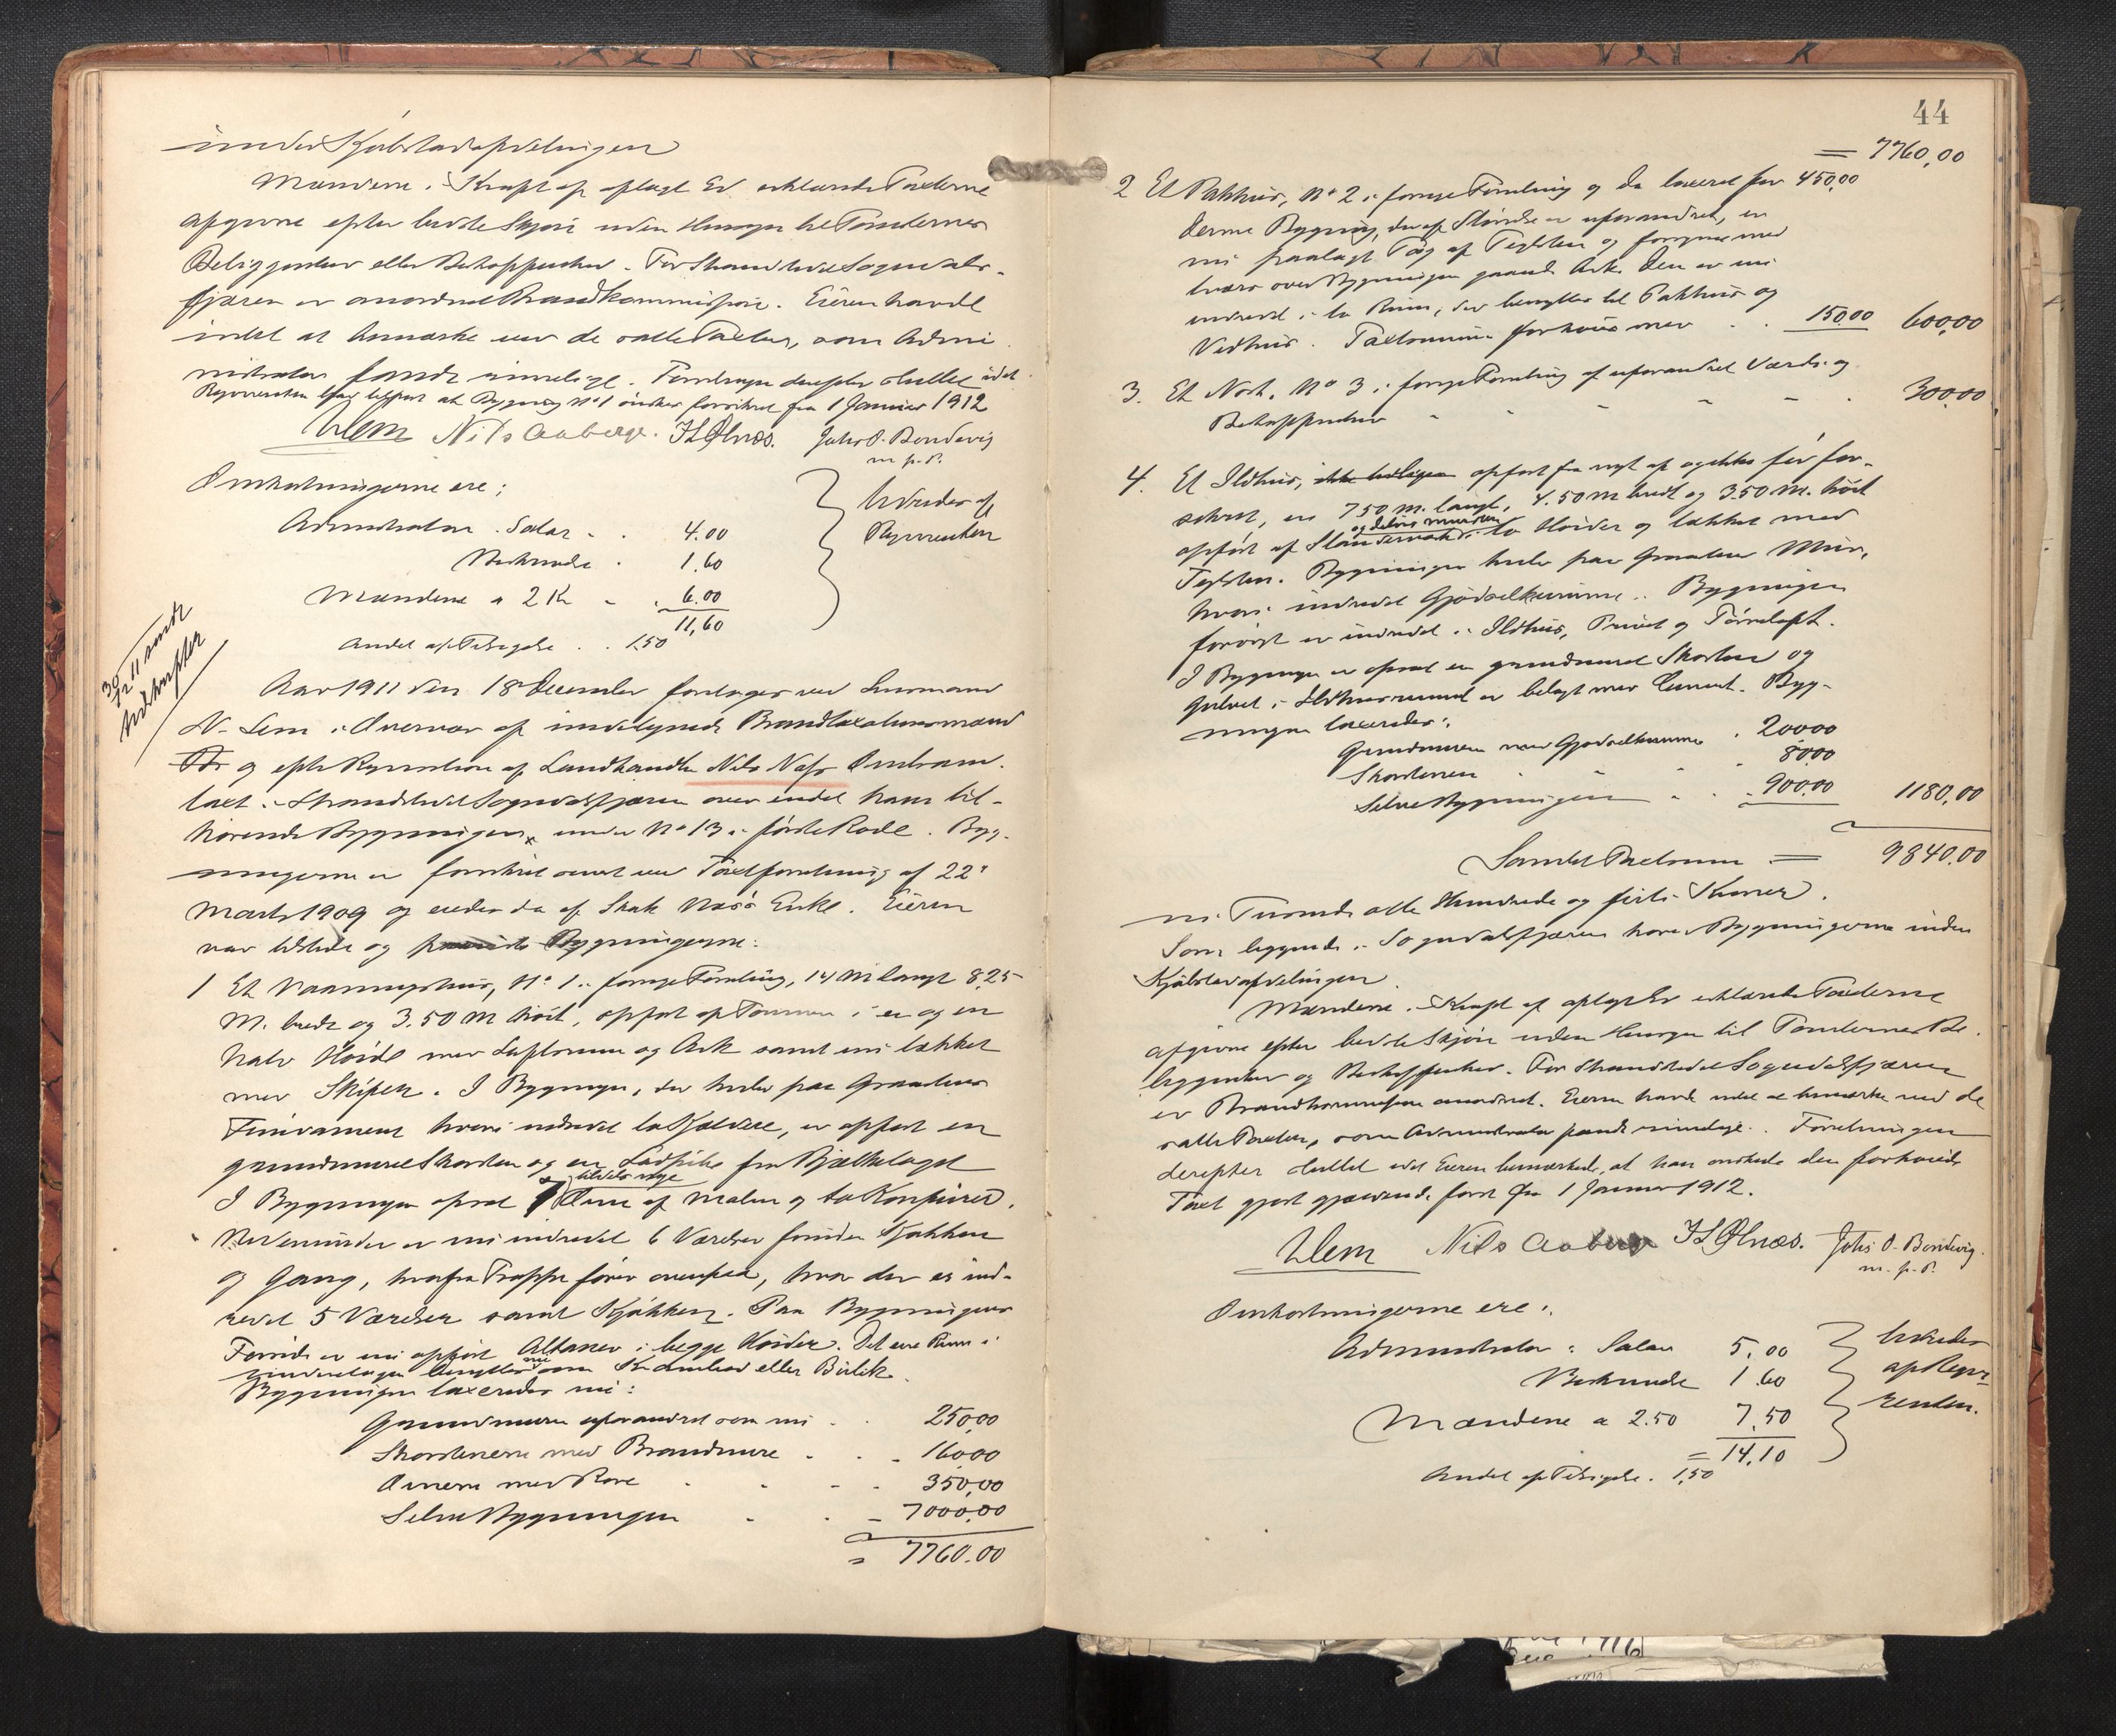 inden Kjøbstadafdelingen
Mændene i Kraft af aflagt Ed erklærede Taxterne
afgivne efter bedste Skjøn uden Hensyn til Tomternes
Beliggenhed eller Beskaffenhed. For Strandstedet Sogndals-
fjæren er anordnet Brandkommission. Eieren havde
intet at bemærke ved de satte Taxter, som Admi
nistrator fandt rimelige. Forretningen derefter sluttet idet
Rekvirenten blev tilført at Bygning No 1 ønskes forsikret fra 1 Januar 1912
NLem Nils Aaberge. H L Ølnæs. Johs O. Bondevig
m. p. P.
Omkostningerne ere;
Administrator i Salar . . 4.00
Beskrivelse . 1.60
Mændene a 2 Kr - . 6.00
11,60
Andel af Tilsigelse . . 1.50
betredes af
Rekvirenten
30/12 11 sendt
Udskrifter
Aar 1911 den 18 December foretoges ved Lensmand
N. Lem i Overvær af undertegnede Brandtaxationsmænd
og efter Rekvisition af Landhandler Nils Næss Ombrand.
taxt i Strandstedet Sogndalsfjæren over endel ham til-
hørende Bygninger, x under No 13 i første Rode. Byg-
ningerne er forsikret senest ved Taxtforretning af 22
Marts 1909 og eiedes da af Enke. Eieren
var tilstede og Bygningerne:
1 Et Vaaningshus, No 1 i forrige Forretning, 14 M langt 8,25
M. bredt og 3.50 M høit, opført af Tømmer i en og en
halv Høide med Luftrum og Ark samt nu tækket
med Skifer. I Bygningen, der hviler paa Graastens
Fundament hvori indredet to Kjældere, er opført en
grundmuret Skorsten og en Ladpibe fra Bjælkelaget
tildels nye
I Bygningen opsat Ovne af Malm og to Komfurer.
Nedenunder er nu indredet 6 Værelser foruden Kjøkken
og Gang, hvorfra Trappe fører ovenpaa, hvor der er ind-
redet 5 Værelser samt Kjøkken. Paa Bygningens
Forside er nu opført Altaner i begge Høider. Det ene Rum i
underetagen benyttes nu som Krambod eller Butik.
Bygningen taxeredes nu:
Grundmuren uforandret som nu . . 250,00
Skorstenene med Brandmure . . - 160,00
Ovnene med Rør . . - - 350,00
Selve Bygningen . . - 7000,00
= 7760.00
44
= 7760,00
2 Et Pakhus, No 2 i forrige Forretning og da taxeret for 450,00
Denne Bygning, der af Størrelse er uforandret, er
nu paalagt Tag af Teglsten og forsynet med
tværs over Bygningen gaaende Ark. Den er nu
indredet i to Rum, der benyttes til Pakhus og
Vedhus. Taxtsummen forhøies med . . 150.00 600,00
3. Et Nost, No 3 i forrige Forretning af uforandret Værdi og
Beskaffenhed - - - - - . 300,00
4. Et Ildhus, opført fra nyt af og ikke før for-
sikret, er 7.50 M. langt, 4.50 M bredt og 3.50 M. høit
og delvis murværk
opført af Standerværk i to Høider og tækket med
Teglsten. Bygningen hviler paa Graastens Mur,
hvori indredet Gjødselkumme. Bygningen
forøvrigt er indredet i Ildhus, Privet og Tørreloft.
I Bygningen er opsat en grundmuret Skorsten og
Gulvet i Ildhusrummet er belagt med Cement. Byg-
ningen taxeredes:
Grundmuren med Gjødselkumme . 200.00
Skorstenen - - - - 80.00
Selve Bygningen - - . 900.00 1180,00
Samlet Taxtsum = 9840.00
ni Tusinde otte Hundrede og firti Kroner.
Som liggende i Sogndalsfjæren hører Bygningerne inden
Kjøbstadafdelingen.
Mændene i Kraft af aflagt Ed erklærede Taxterne
afgivne efter bedste Skjøn uden Hensyn til Tomternes Be-
liggenhed og Beskaffenhed. For Strandstedet Sogndalsfjæren
er Brandkommission anordnet. Eieren havde intet at bemærke ved de
satte Taxter, som Administrator fandt rimelige. Forretningen
derefter sluttet idet Eieren bemærkede, at han ønskede den forhøiede
Taxt gjort gjældende først fra 1 Januar 1912.
NLem Nils Aaberge H L Ølnæs. Johs O. Bondevig.
m. p. P.
Omkostningerne ere:
Administrator i Salar 5,00
Beskrivelse 1.60
Mændene a 2.50 7.50
= 14,10
Andel af Tilsigelse . 1,50
betredes
af Rekvi-
renten.
1916